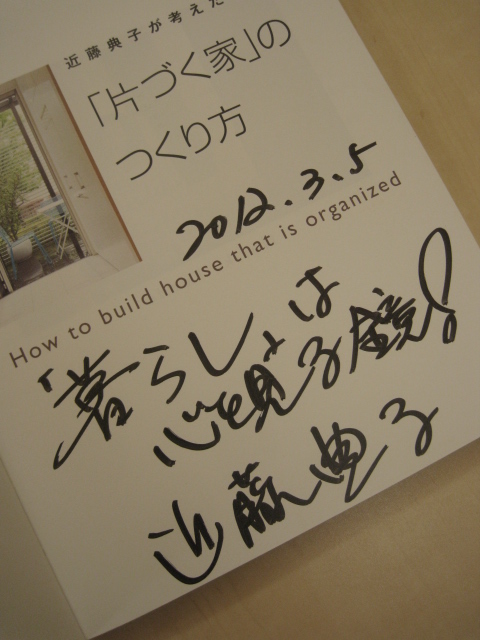 近藤典子が考えた
「片づく家」の
つくり方
2012.3.5
How to build house that is organized
「暮らし」は
心を見る鏡!
近藤典子